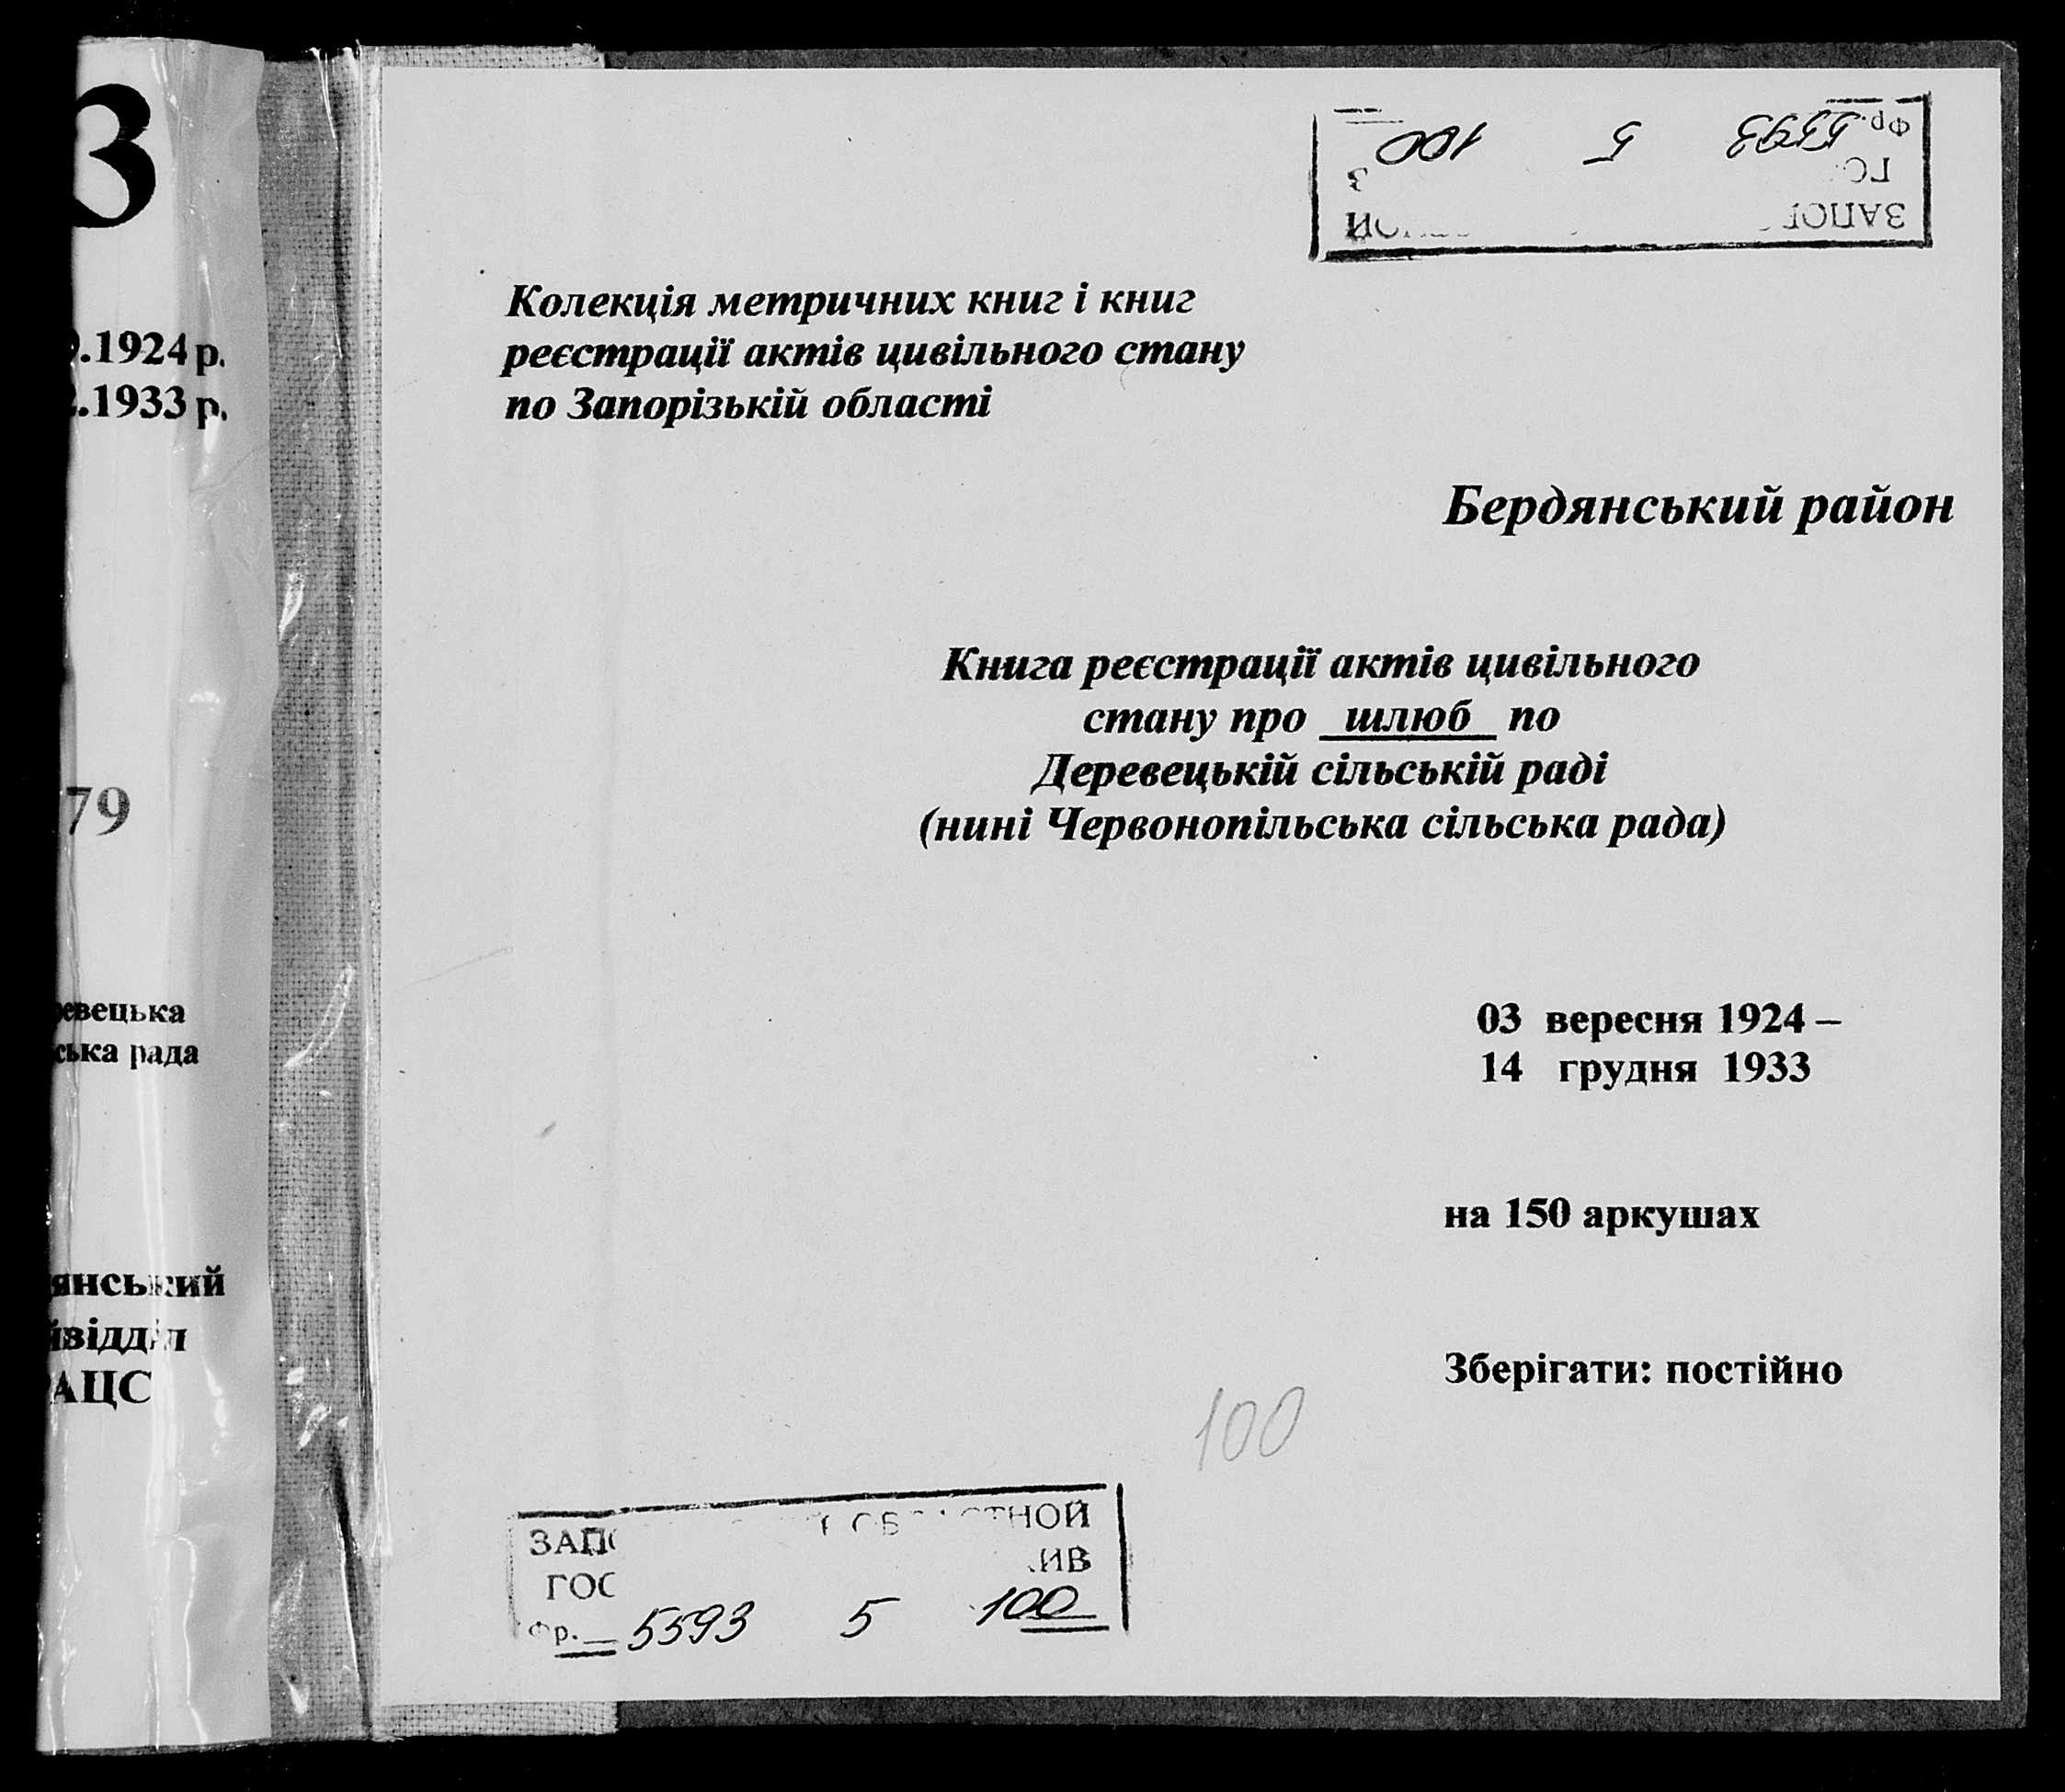 З
.1924 р.
.1933 р.
79
ревецька
ська рада
янський
йвідділ
РАЦС
Фр. 5593 5 100
ГС
ЗАПОР
НОЙ
Колекція метричних книг і книг
реєстрації актів цивільного стану
по Запорізькій області
Бердянський район
Книга реєстрації актів цивільного
стану про шлюб по
Деревецькій сільській раді
(нині Червонопільська сільська рада)
03 вересня 1924 –
14 грудня 1933
на 150 аркушах
Зберігати: постійно
100
ЗАПО ОБЛАСТНОЙ
ГОС ИВ
Фр. 5593 5 100